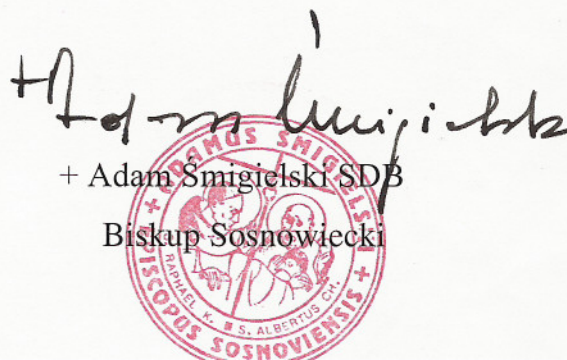 + Adam Śmigielski
+ Adam Śmigielski SDB
Biskup Sosnowiecki
ADAMUS ŚMIGIELSKI + EPISCOPUS SOSNOVIENSIS +
RAPHAEL K. S. ALBERTUS CH.